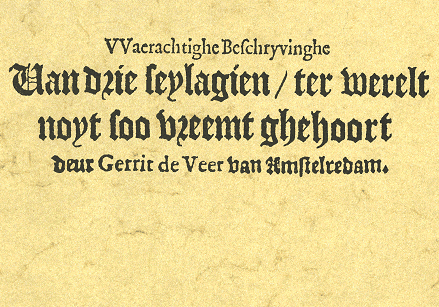 VVaerachtighe Beſchryvinghe
Van drie ſeylagien / ter werelt
noyt ſoo vreemt ghehoort
deur Gerrit de Veer van Amſtelredam.